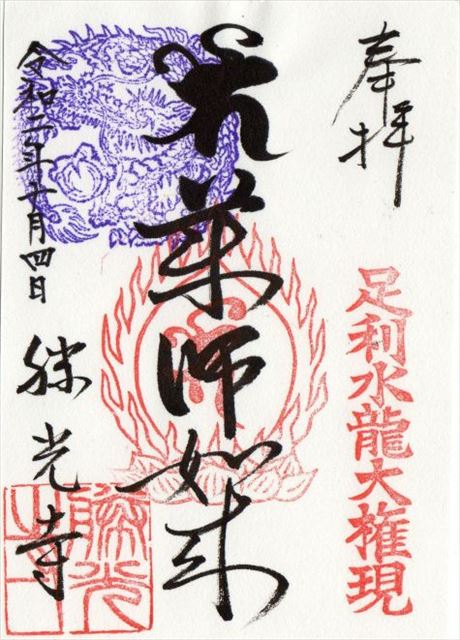 奉拝
足利水龍大権現
薬師如来
令和二年十月四日
勝光寺
勝光
之寺